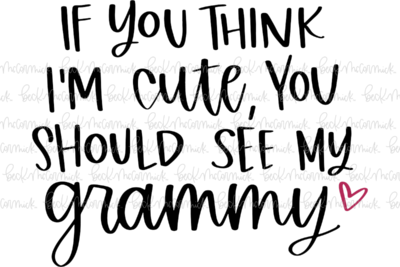 IF YOU THINK
I'M cute, YOU
SHOULD SEE MY
grammy